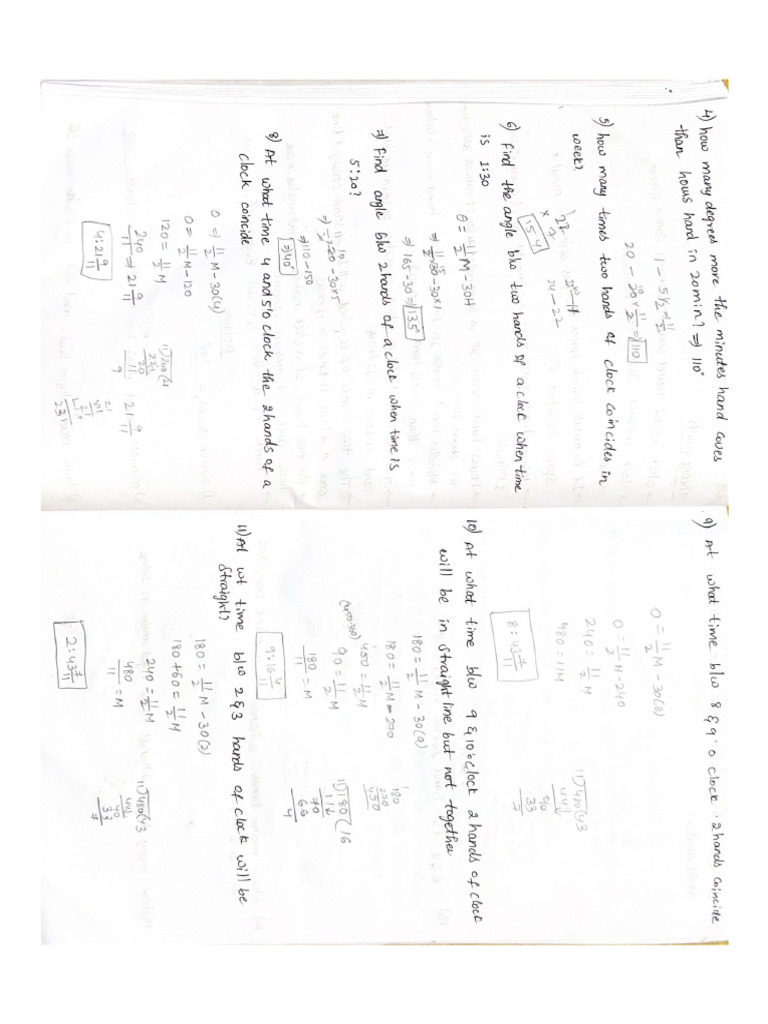 4) how many degrees more the minutes hand coves
than hours hand in 20min? ⇒ 110°
11 - 5 1/2 ⇒ 11/2
20 - 20 × 11/2 ⇒ 110
5) how many times two hands of clock coincides in
week?
22
× 7
154
24 - 22
6) Find the angle b/w two hands of a clock when time
is 1:30
θ = 11/2 M - 30H
⇒ 11/2 30 - 30×1
⇒ 165 - 30 ⇒ 135°
7) Find angle b/w 2 hands of a clock when time is
5:20?
⇒ 11/2 20 - 30×5
⇒ 110 - 150
⇒ 40°
8) At what time 4 and 5'o clock the 2 hands of a
clock coincide
0 ⇒ 11/2 M - 30(4)
0 = 11/2 M - 120
120 = 11/2 M
240/11 ⇒ 21 9/11
21 9/11
4:21 9/11
9) At what time b/w 8 & 9'o clock 2 hands coincide
0 = 11/2 M - 30(8)
0 = 11/2 M - 240
240 = 11/2 M
480 = 11M
11)480(43
44
40
33
7
8:43 7/11
10) At what time b/w 9 & 10'o clock 2 hands of clock
will be in straight line but not together
180 = 11/2 M - 30(9)
180 = 11/2 M - 270
450 = 11/2 M
90 = 11/2 M
180/11 = M
180
270
450
11)180(16
11
70
66
4
9:16 4/11
11) At wt time b/w 2 & 3 hands of clock will be
straight?
180 = 11/2 M - 30(2)
180 + 60 = 11/2 M
240 = 11/2 M
480/11 = M
11)480(43
44
40
33
7
2:43 7/11